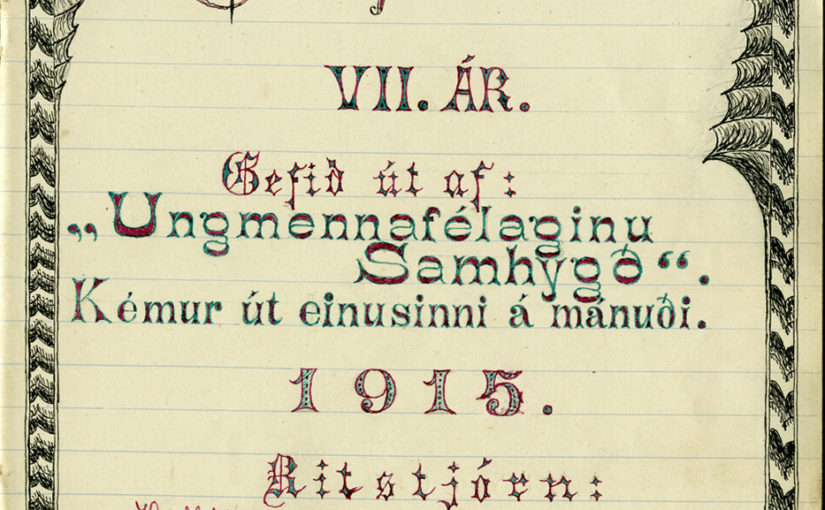 VII. ÁR.
Gefið út af:
„Ungmennafélaginu
Samhygð“.
Kémur út einusinni á mánuði.
1915.
Ritstjórn: